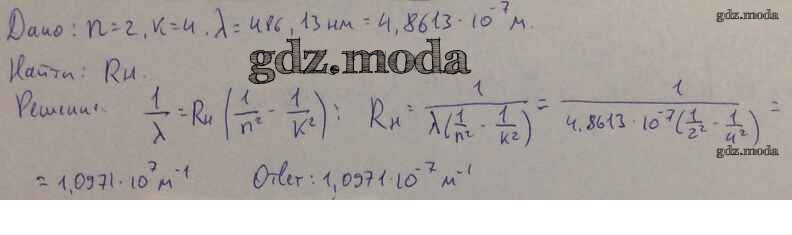 Дано: n=2, k=4. λ=486,13 нм = 4,8613·10⁻⁷ м.
gdz.moda
Найти: Rн.
gdz.moda
Решение: 1/λ = Rн (1/n² - 1/k²); Rн = 1/(λ(1/n² - 1/k²)) = 1/(4.8613·10⁻⁷(1/2² - 1/4²)) =
gdz.moda
= 1,0971·10⁷ м⁻¹ Ответ: 1,0971·10⁻⁷ м⁻¹